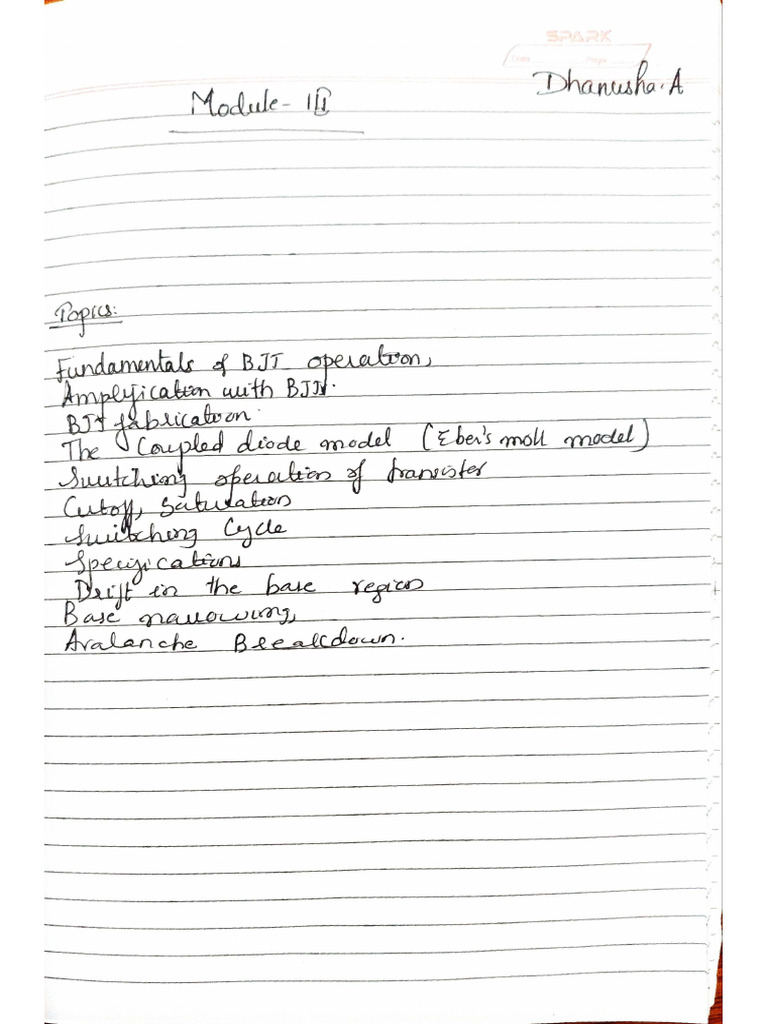 SPARK
Date Page
Dhanusha.A
Module - III
Topics:
Fundamentals of BJT operation,
Amplification with BJTs.
BJT fabrication.
The Coupled diode model (Eber's moll model)
Switching operation of transistor
Cutoff, Saturation
Switching Cycle
Specifications
Drift in the base region
Base narrowing,
Avalanche Breakdown.